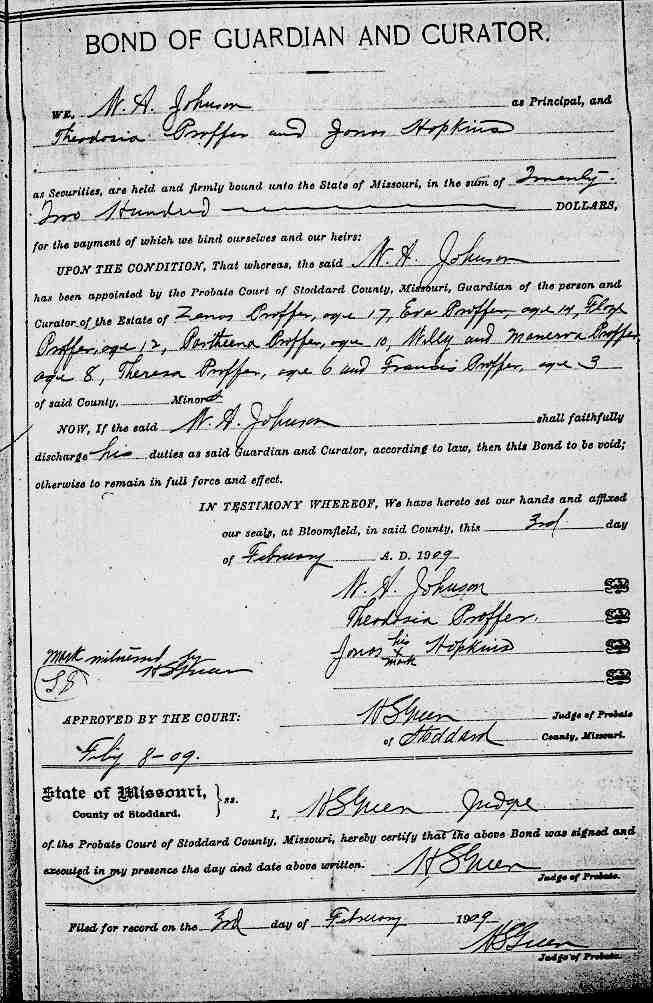 BOND OF GUARDIAN AND CURATOR.
WE, W. A. Johnson as Principal, and
Theodosia Proffer and Jonas Hopkins
as Securities, are held and firmly bound unto the State of Missouri, in the sum of Twenty-
Two Hundred DOLLARS,
for the payment of which we bind ourselves and our heirs:
UPON THE CONDITION, That whereas, the said W. A. Johnson
has been appointed by the Probate Court of Stoddard County, Missouri, Guardian of the person and
Curator of the Estate of Zenos Proffer, age 17, Eva Proffer, age 14, Floyd
Proffer, age 12, Partheena Proffer, age 10, Willy and Manerva Proffer,
age 8, Theresa Proffer, age 6 and Francis Proffer, age 3
of said County, Minors
NOW, If the said W. A. Johnson shall faithfully
discharge his duties as said Guardian and Curator, according to law, then this Bond to be void;
otherwise to remain in full force and effect.
IN TESTIMONY WHEREOF, We have hereto set our hands and affixed
our seals, at Bloomfield, in said County, this 3rd day
of February A. D. 1909
W. A. Johnson
Theodosia Proffer.
Jonas his x mark Hopkins
Mark witnessed by
H S Green
APPROVED BY THE COURT: H S Green Judge of Probate
of Stoddard County, Missouri.
Feby 8-09.
State of Missouri, } ss.
County of Stoddard. I, H S Green Judge
of the Probate Court of Stoddard County, Missouri, hereby certify that the above Bond was signed and
executed in my presence the day and date above written. H S Green
Judge of Probate.
Filed for record on the 3rd day of February 1909
H S Green
Judge of Probate.